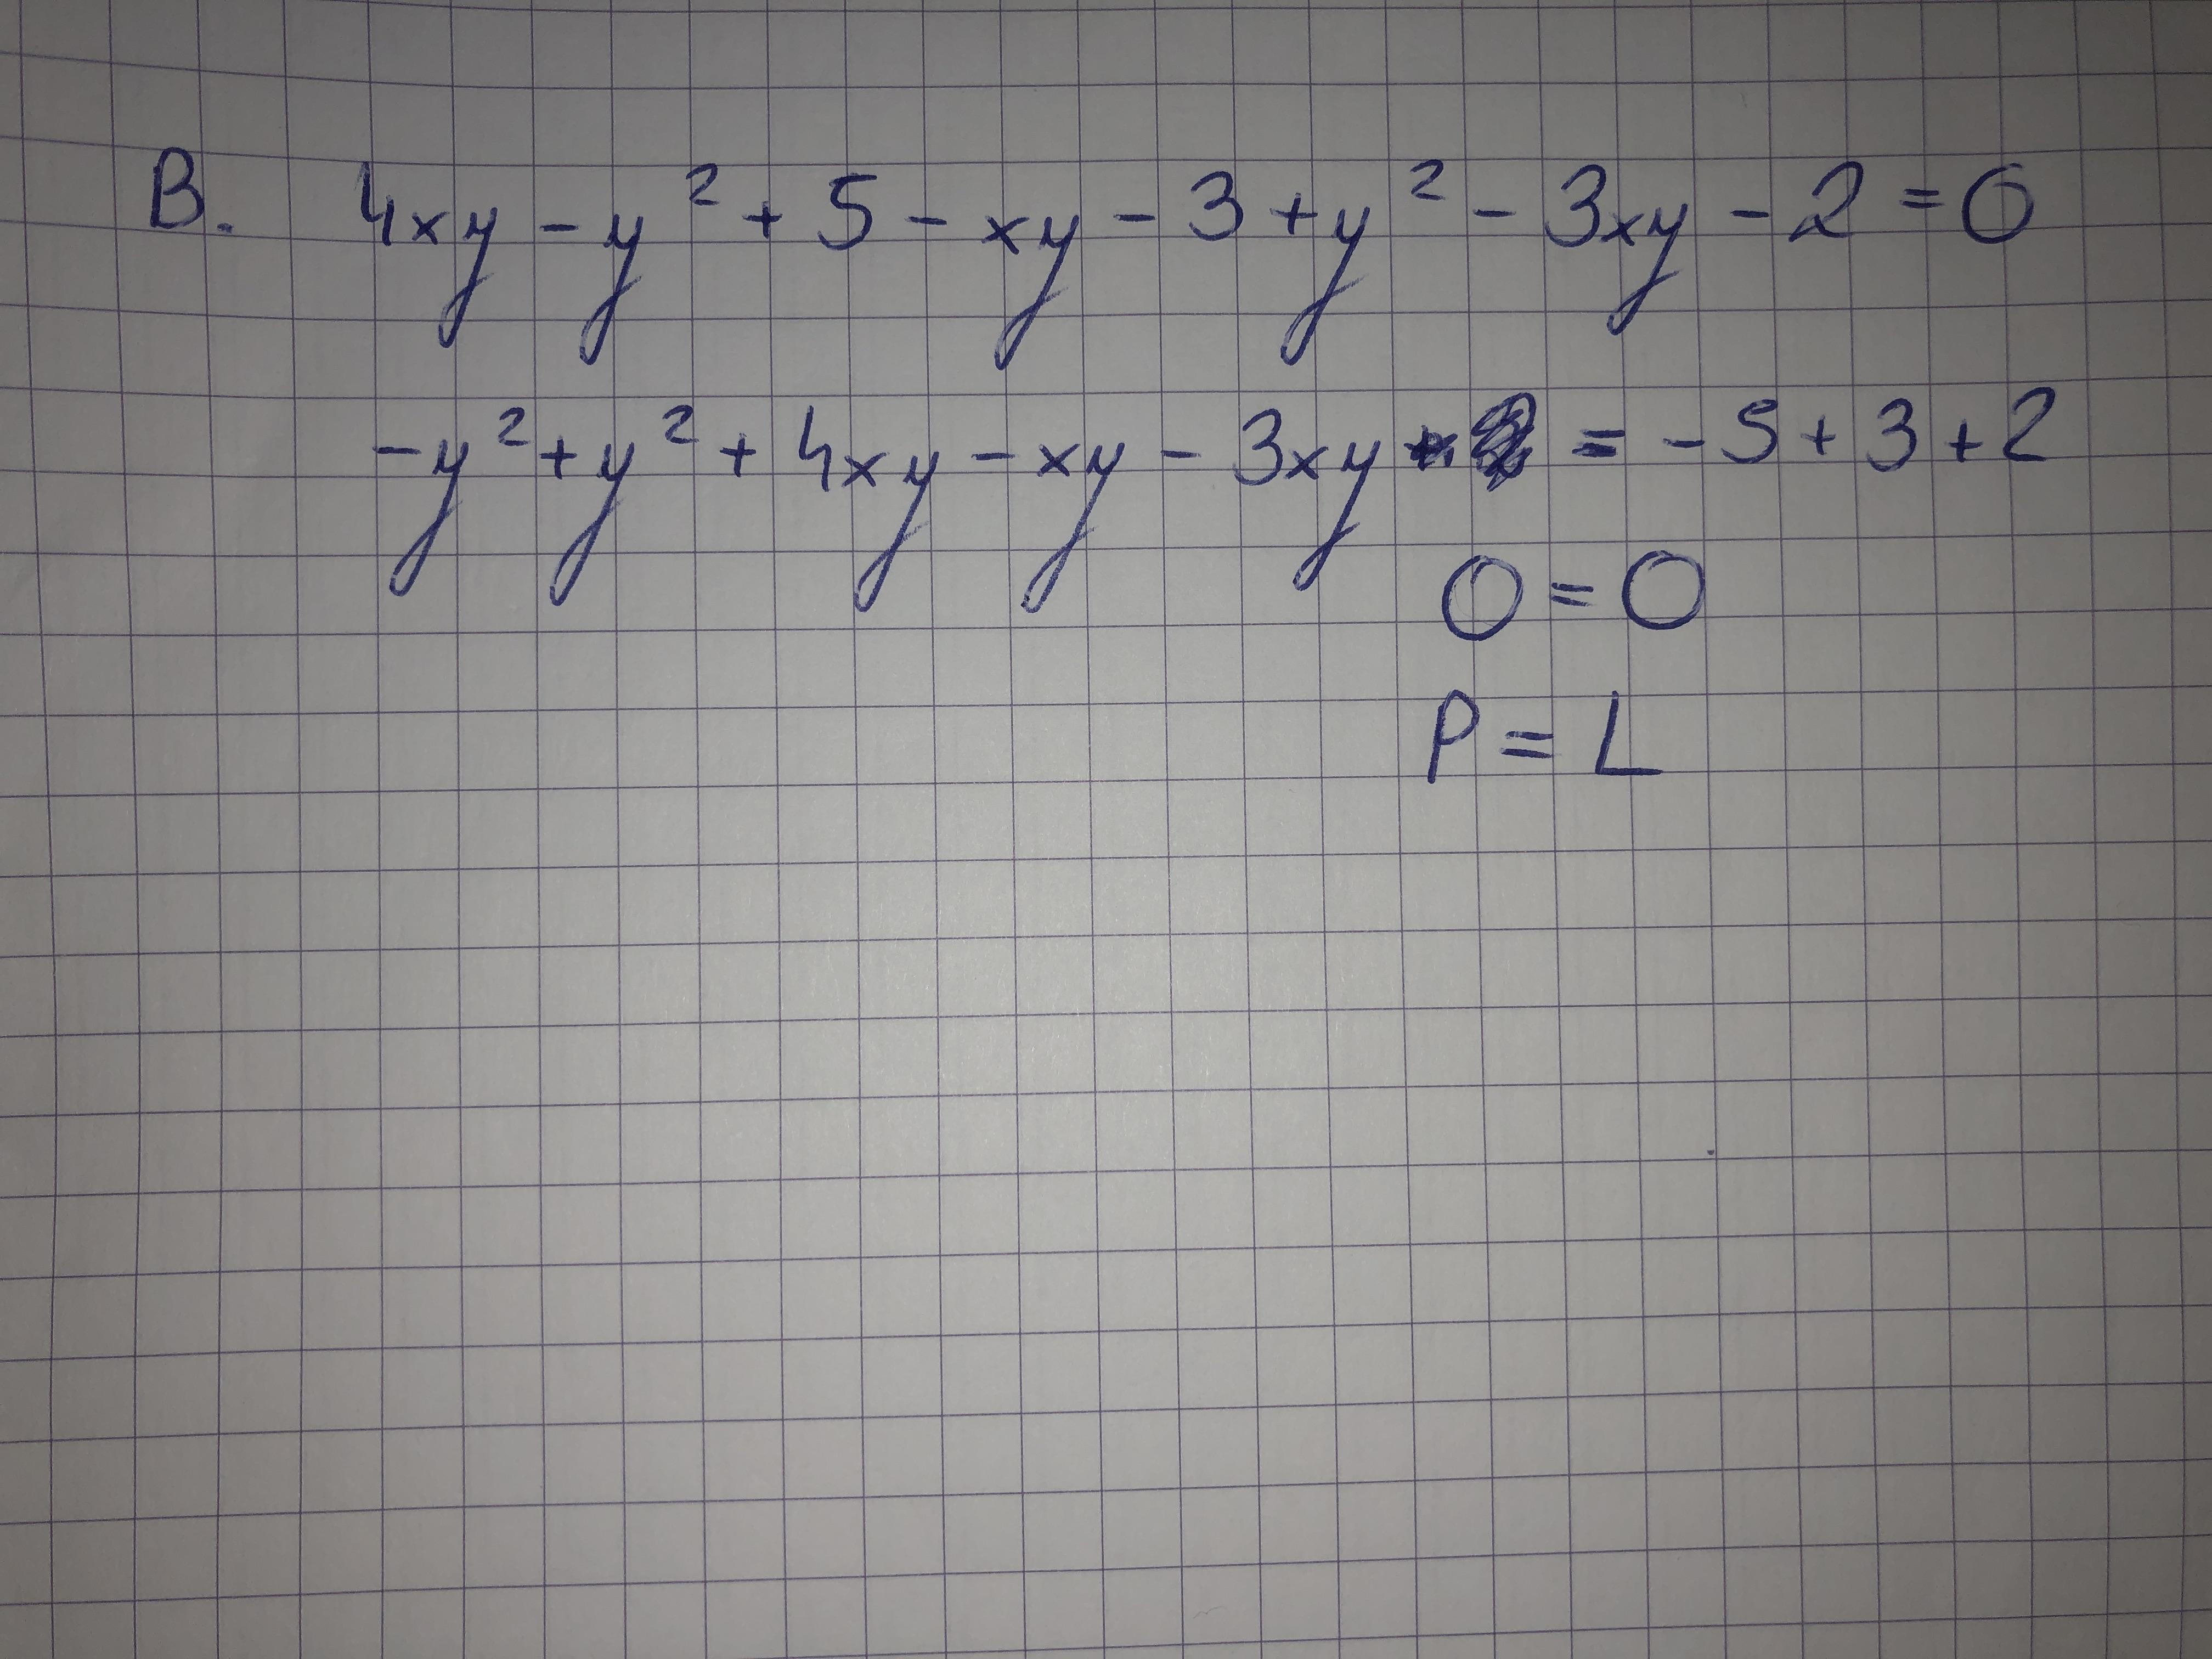 B. 4xy - y² + 5 - xy - 3 + y² - 3xy - 2 = 0
-y² + y² + 4xy - xy - 3xy = -5 + 3 + 2
0 = 0
P = L